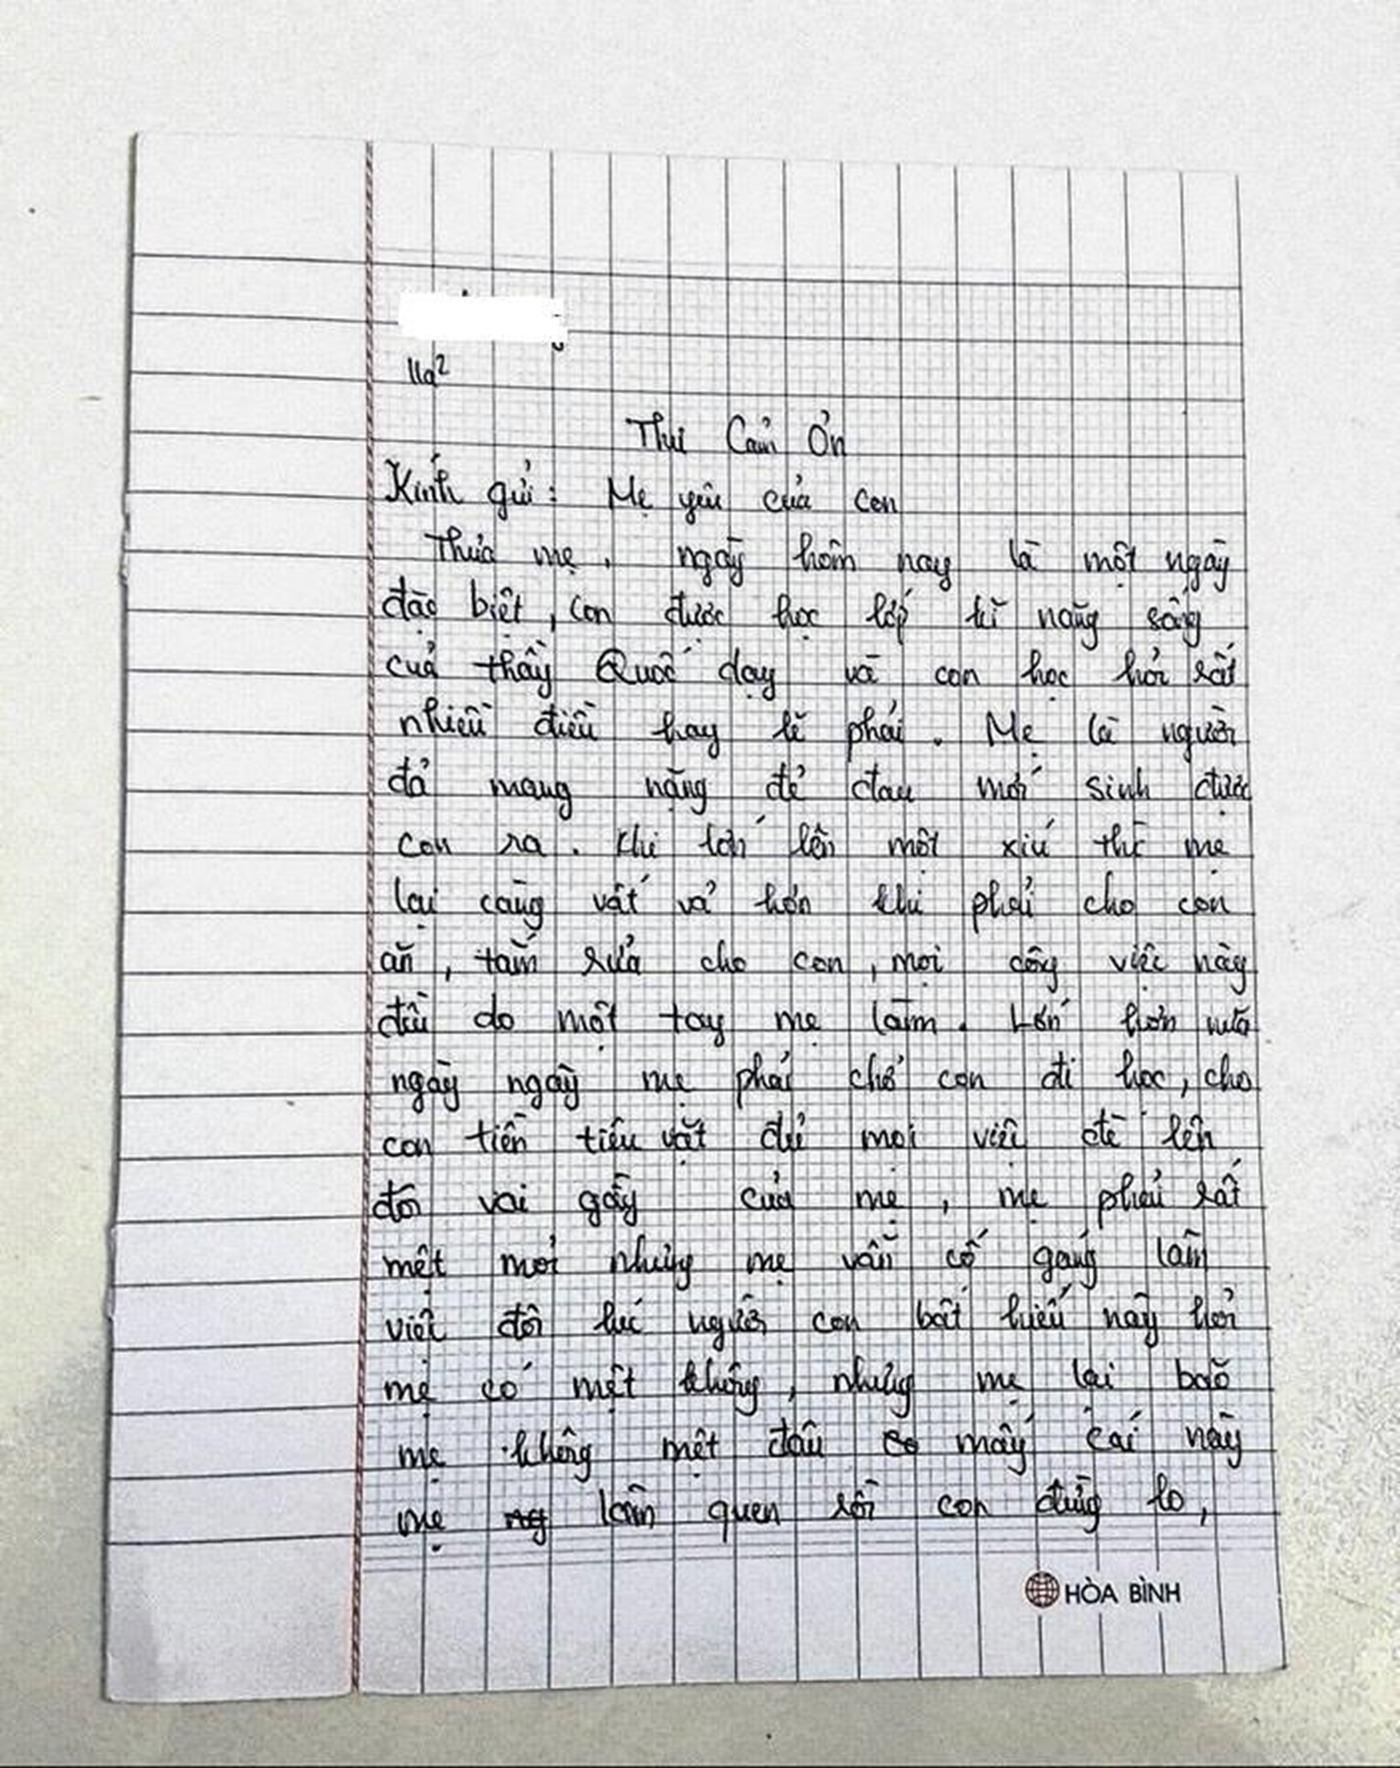 11a²
Thư Cảm Ơn
Kính gửi: Mẹ yêu của con
Thưa mẹ, ngày hôm nay là một ngày
đặc biệt, con được học lớp kĩ năng sống
của thầy Quốc dạy và con học hỏi rất
nhiều điều hay lẽ phải. Mẹ là người
đả mang nặng đẻ đau mới sinh được
con ra. Khi lớn lên một xíu thì mẹ
lại càng vất vả hơn khi phải cho con
ăn, tắm rửa cho con, mọi công việc này
đều do một tay mẹ làm. Lớn hơn nữa
ngày ngày mẹ phải chở con đi học, cho
con tiền tiêu vặt đủ mọi việc đè lên
đôi vai gầy của mẹ, mẹ phải rất
mệt mỏi nhưng mẹ vẫn cố gắng làm
việc đôi lúc người con bất hiếu này hỏi
mẹ có mệt không, nhưng mẹ lại bảo
mẹ không mệt đâu mấy cái này
mẹ làm quen rồi con đừng lo,
HÒA BÌNH